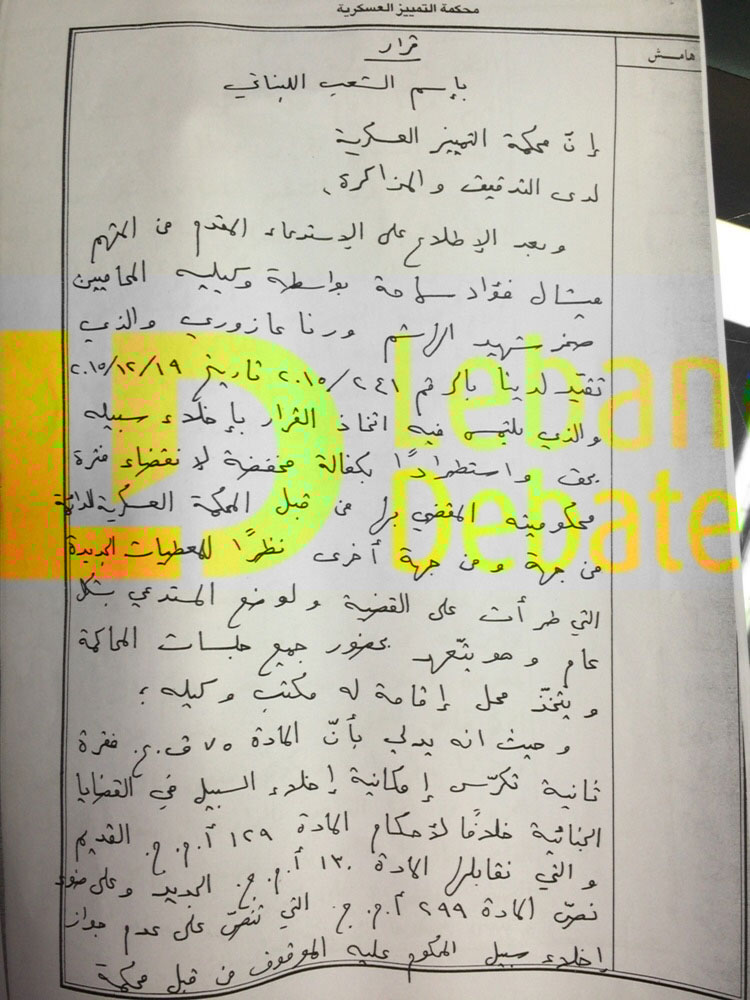 محكمة التمييز العسكرية
هامش
قرار
بإسم الشعب اللبناني
إنّ محكمة التمييز العسكرية
لدى التدقيق والمذاكرة،
وبعد الإطلاع على الإستدعاء المقدم من المتهم
ميشال فؤاد سماحة بواسطة وكيليه المحاميين
صخر شهيد الهاشم ورنا عازوري والذي
تقيّد لدينا بالرقم ٢٤١/٢٠١٥ تاريخ ٢٠١٥/١٢/١٩
والذي يلتمس فيه اتخاذ القرار بإخلاء سبيله
بحق واستطراداً بكفالة مخفضة لإنقضاء فترة
محكوميته المقضي بها من قبل المحكمة العسكرية الدائمة
من جهة ومن جهة أخرى نظراً للمعطيات الجديدة
التي طرأت على القضية ولوضع المستدعي بشكل
عام وهو يتعهد بحضور جميع جلسات المحاكمة
ويتخذ محل إقامة له مكتب وكيله؛
وحيث انه يدلي بأنّ المادة ٧٥ ق.ع. فقرة
ثانية تكرّس إمكانية إخلاء السبيل في القضايا
الجنائية خلافاً لأحكام المادة ١٢٩ أ.م.ج. القديم
والتي تقابلها المادة ١٣٠ أ.م.ج. الجديد وعلى ضوء
نصّ المادة ٢٩٩ أ.م.ج. التي تنصّ على عدم جواز
إخلاء سبيل المحكوم عليه الموقوف من قبل محكمة
Leban
Debate
LD